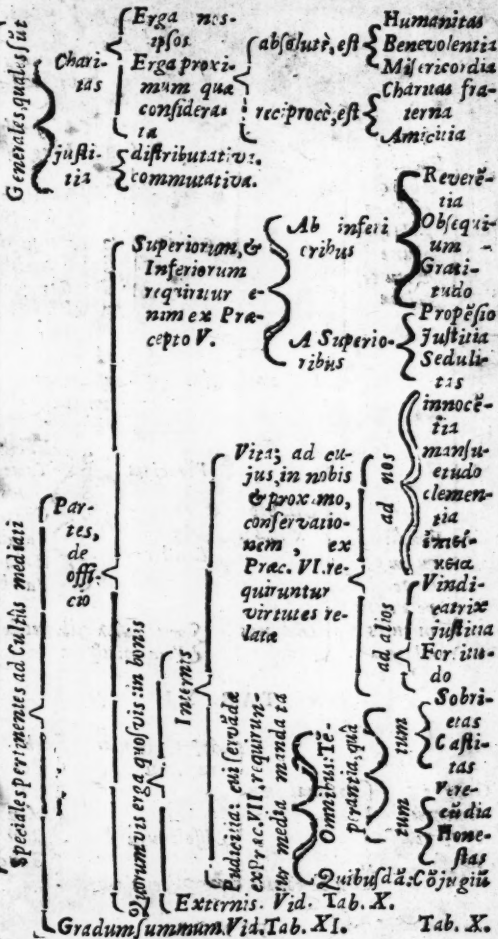 Generales, quales sũt
Chari-
tas
Erga nos-
ipsos
Erga proxi-
mum quæ
considera-
ta
absolutè, est
Humanitas
Benevolentia
Misericordia
reciprocè, est
Charitas fra-
terna
Amicitia
justi-
tia
distributativa.
commutativa.
Speciales pertinentes ad Cultũs mediati
Par-
tes,
de
offi-
cio
Superiorum, &
Inferiorum
requiritur e-
nim ex Præ-
cepto V.
Ab inferi
oribus
Reverē-
tia
Obsequi-
um
Grati-
tudo
A Superio-
ribus
Propẽsio
Justitia
Seduli-
tas
Quorumvis erga quosvis: in bonis
Internis
Vitæ; ad cu-
jus, in nobis
& proximo,
conservatio-
nem, ex
Præc. VI. re-
quiruntur
virtutes re-
latæ
ad nos
innocē-
tia
mansu-
etudo
clemen-
tia
ἐπιεί-
κεια
ad alios
Vindi-
catrix
justitia
Fortitu-
do
Pudicitiæ: cui servādæ
ex Præc. VII. requirun-
tur media mandata
Omnibus: Tē-
perantia, quâ
tum
Sobri-
etas
Casti-
tas
tum
Vere-
cũdia
Hone-
stas
Quibusdã: Cõjugiũ
Externis. Vid. Tab. X.
Gradum summum. Vid. Tab. XI.
Tab. X.